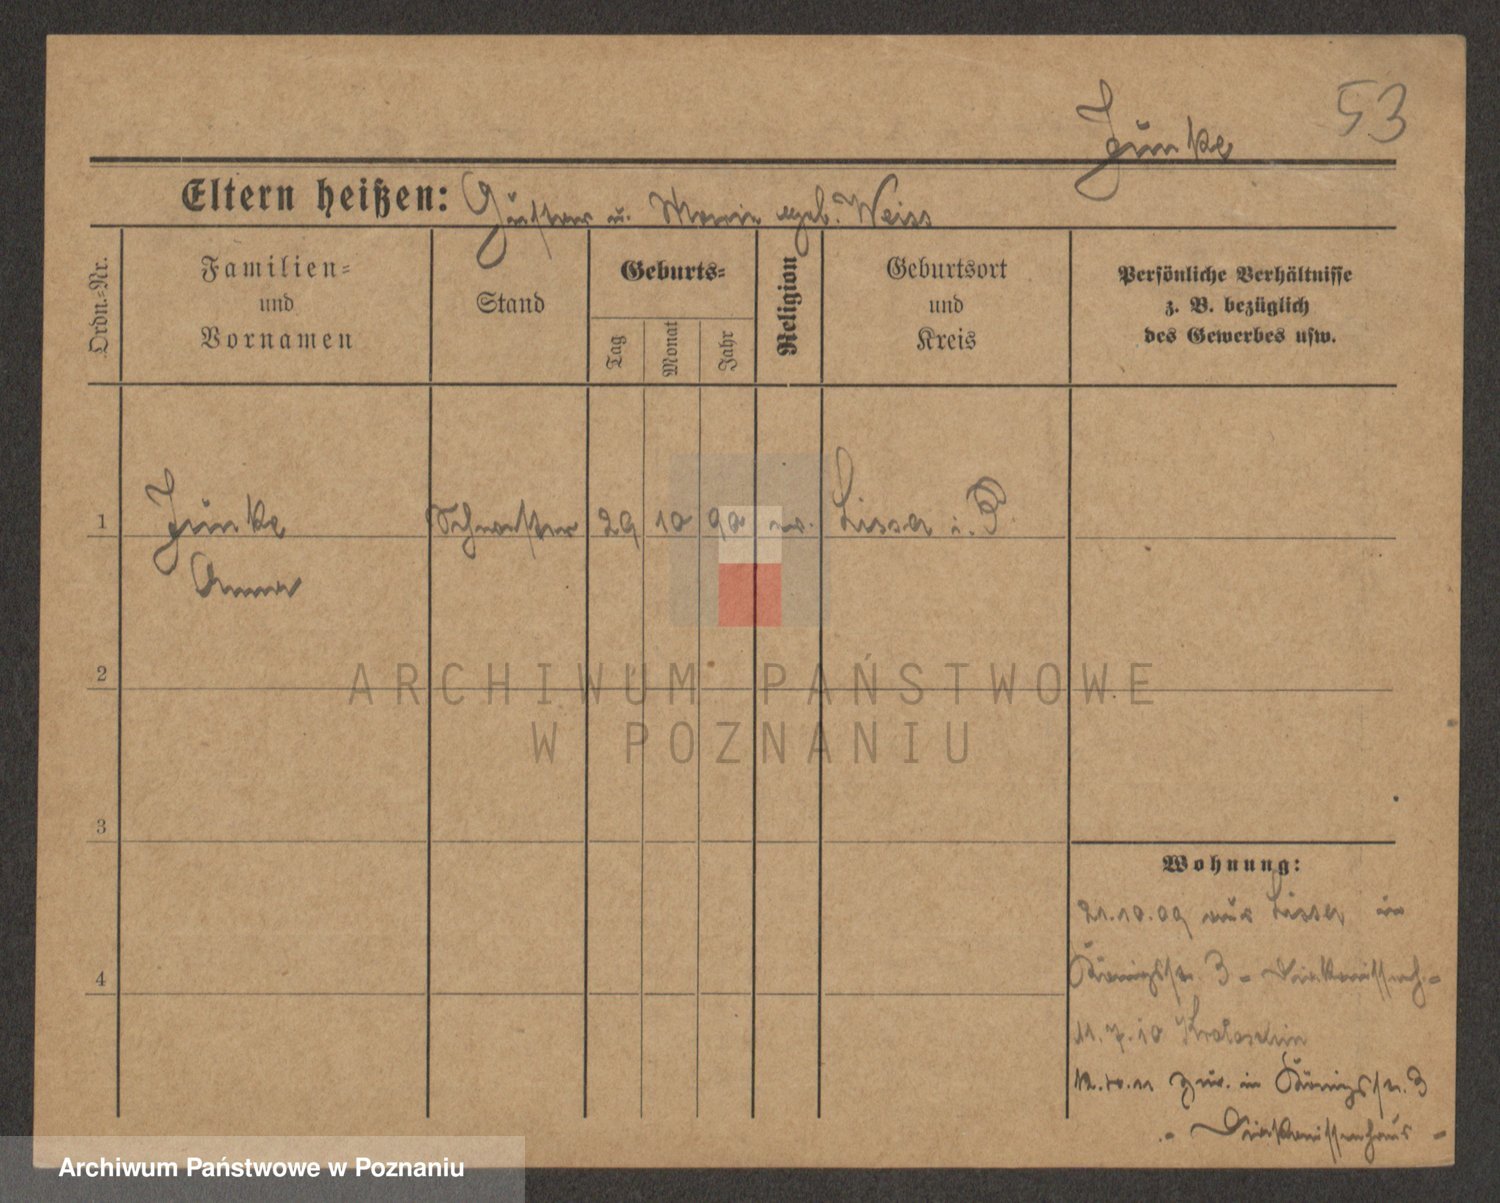 53
Junke
Eltern heißen: Gustav u. Marie geb. Weiss
Ordn.-Nr.
Familien- und Vornamen
Stand
Geburts-
Tag
Monat
Jahr
Religion
Geburtsort und Kreis
Persönliche Verhältnisse
z. B. bezüglich
des Gewerbes usw.
1 Junke Schwester 29 10 90 ev. Lissa i. P.
Anna
2
ARCHIWUM PAŃSTWOWE
W POZNANIU
3
Wohnung:
21.10.09 aus Lissa in
Königsstr. 3 - Diakonissenh.-
4
11.7.10 Krotoschin
zur. in Königsstr. 3
- Diakonissenhaus -
Archiwum Państwowe w Poznaniu